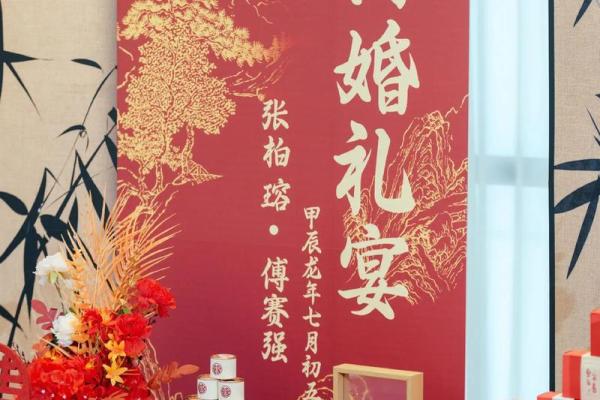 婚礼宴
甲辰龙年七月初五
张柏瑢·傅赛强